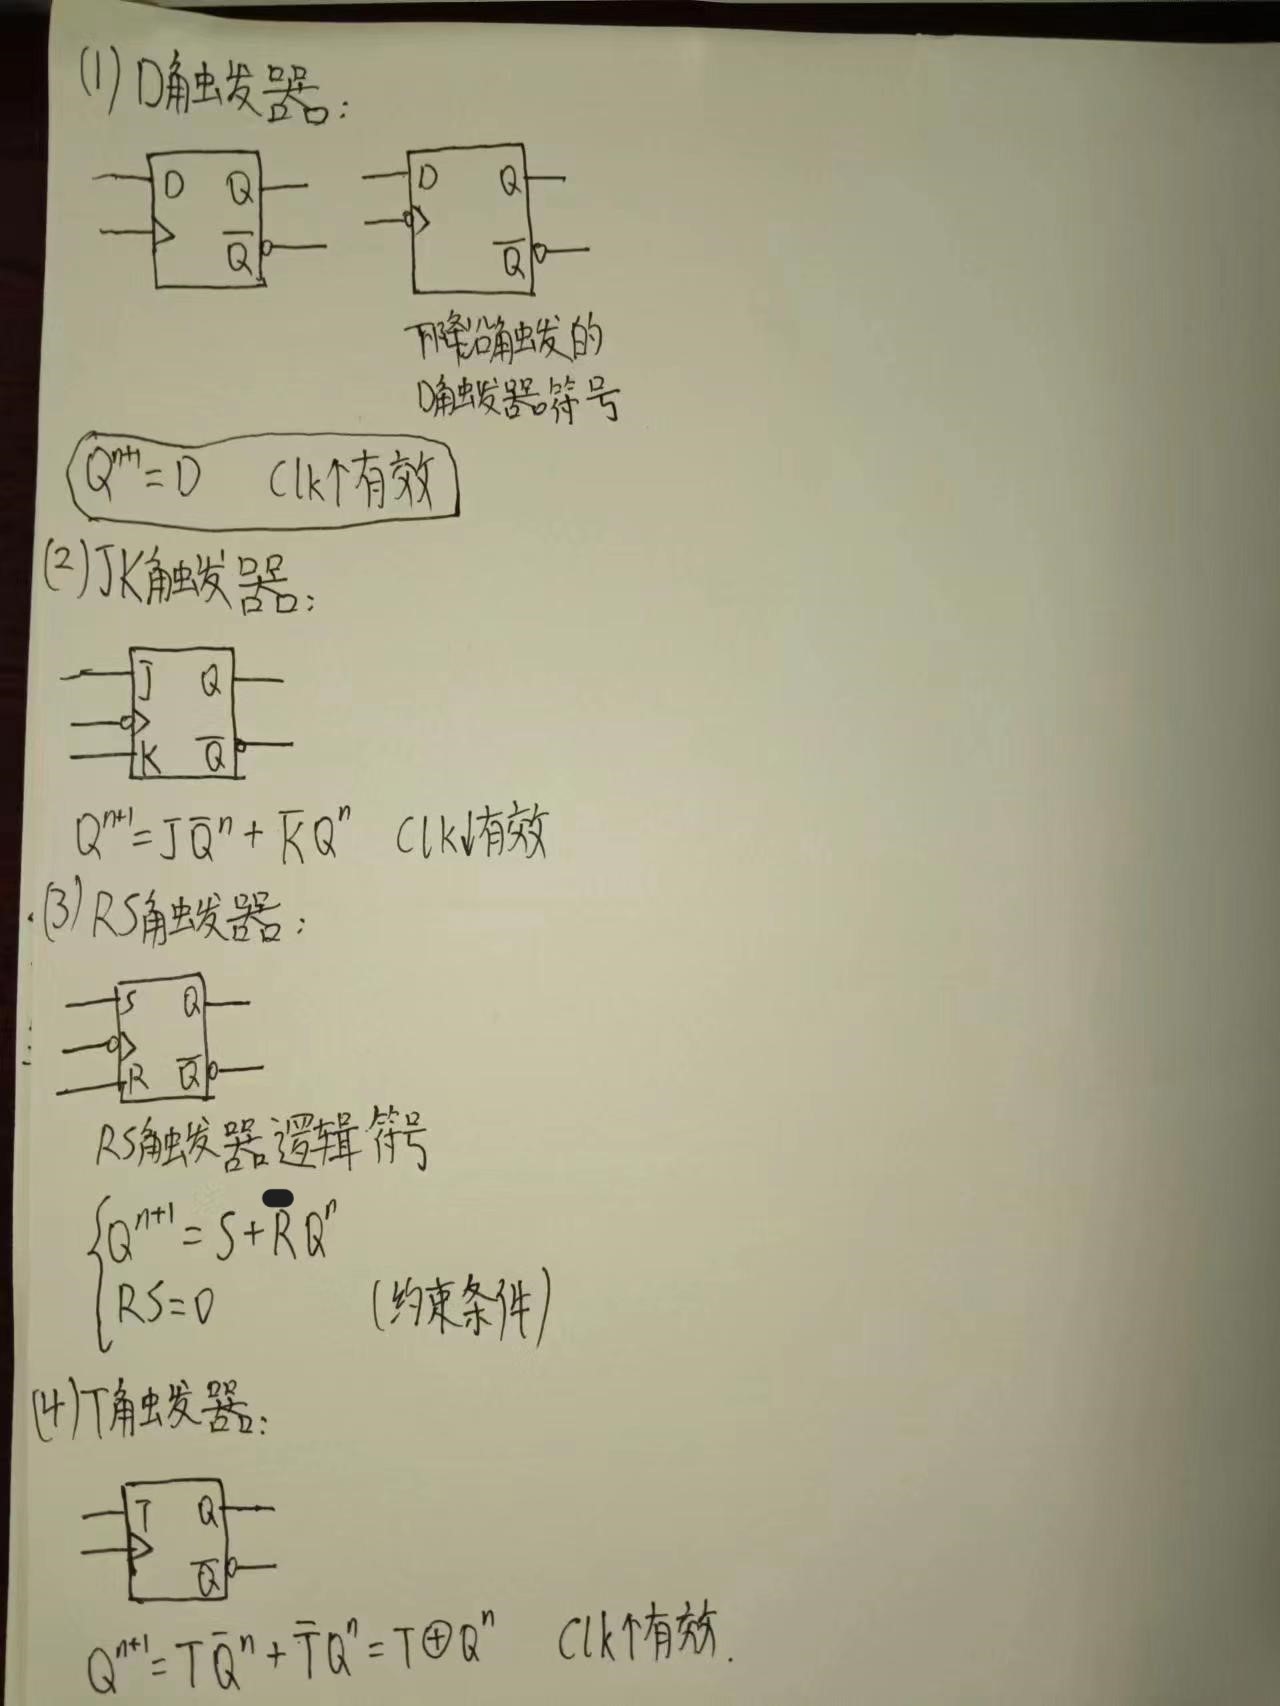 (1) D角触发器:
D Q
Q̅
D Q
Q̅
下降沿触发的
D触发器符号
Qⁿ⁺¹=D Clk↑有效
(2) JK触发器:
J Q
K Q̅
Qⁿ⁺¹=JQ̅ⁿ+K̅Qⁿ Clk↓有效
(3) RS触发器:
S Q
R Q̅
RS触发器逻辑符号
Qⁿ⁺¹=S+RQⁿ
RS=0 (约束条件)
(4) T触发器:
T Q
Q̅
Qⁿ⁺¹=TQ̅ⁿ+T̅Qⁿ=T⊕Qⁿ Clk↑有效.